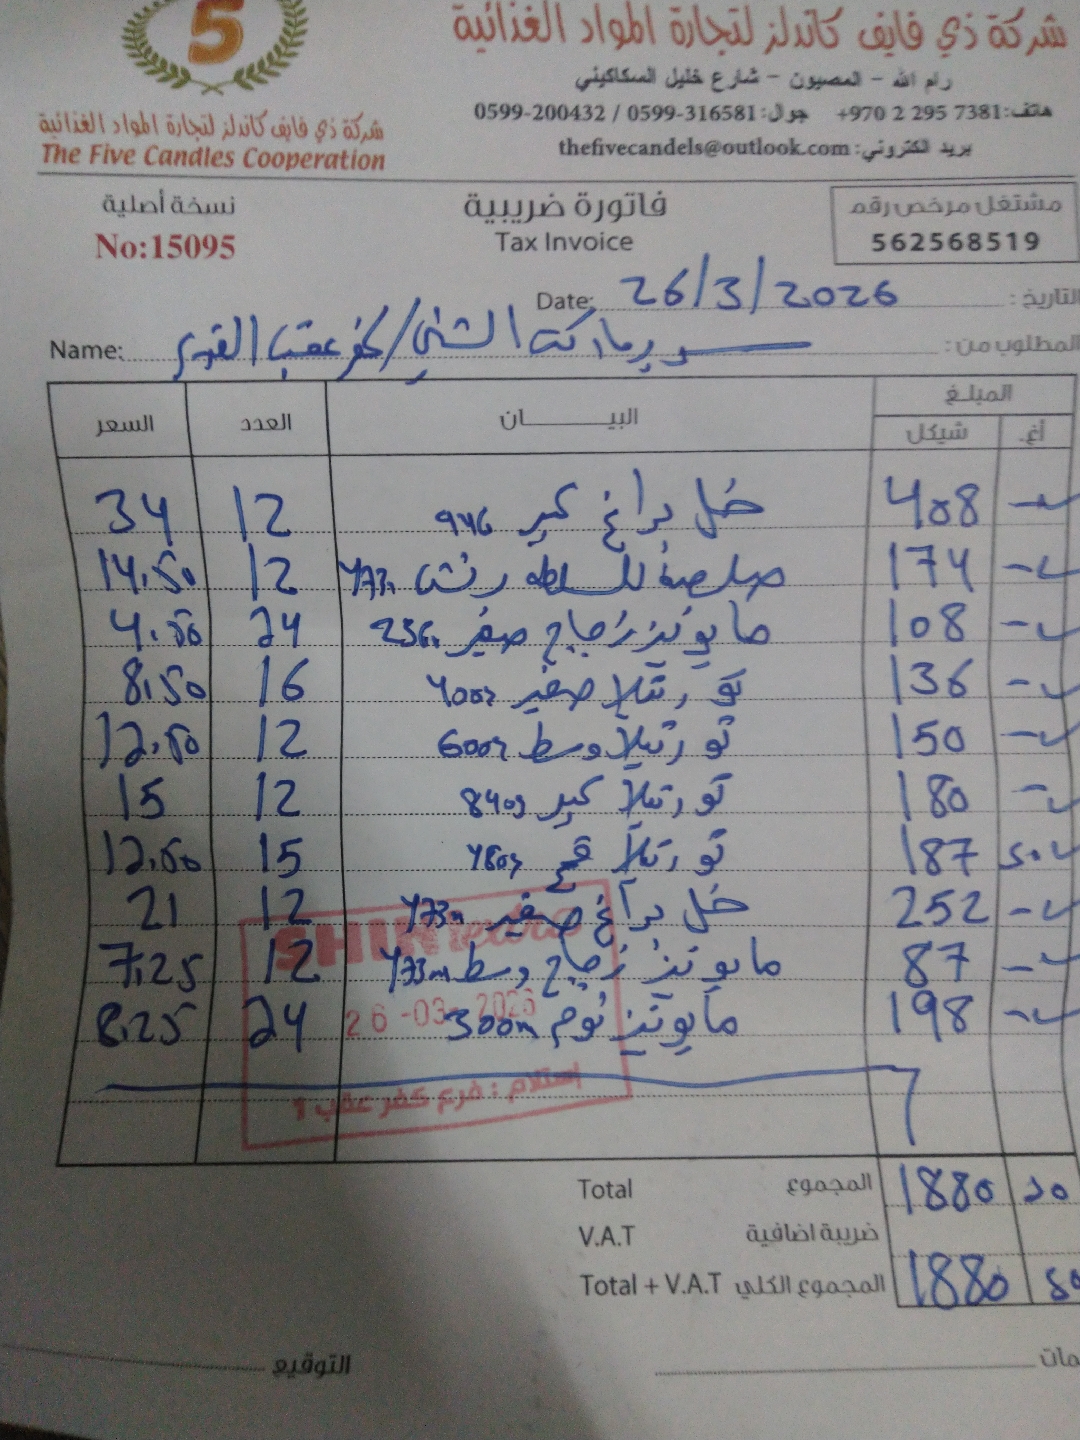 5
شركة ذي فايف كاندلز لتجارة المواد الغذائية
رام الله - المصيون - شارع خليل السكاكيني
هاتف: +970 2 295 7381 جوال: 0599-316581 / 0599-200432
بريد الكتروني: thefivecandels@outlook.com
شركة ذي فايف كاندلز لتجارة المواد الغذائية
The Five Candles Cooperation
مشتغل مرخص رقم
562568519
فاتورة ضريبية
Tax Invoice
نسخة أصلية
No:15095
التاريخ: 26/3/2026 Date:
المطلوب من: سوبرماركت الشني/كفر عقب القديم Name:
المبلغ البيـــــان العدد السعر
أغ. شيكل
- 408 خل براغ كبير 946 12 34
- 174 صلصة للسلطة رنش 473 12 14.50
- 108 مايونيز زجاج صغير 236 24 4.50
- 136 تورتيلا صغير 400g 16 8.50
- 150 تورتيلا وسط 600g 12 12.50
- 180 تورتيلا كبير 840g 12 15
50 187 تورتيلا قمح 480g 15 12.50
- 252 خل براغ صغير 473m 12 21
- 87 مايونيز زجاج وسط 473m 12 7.25
- 198 مايونيز ثوم 300m 24 8.25
SHINI
26-03-2026
إستلام : فرع كفر عقب 1
Total المجموع 1880 50
V.A.T ضريبة اضافية
Total + V.A.T المجموع الكلي 1880 50
التوقيع